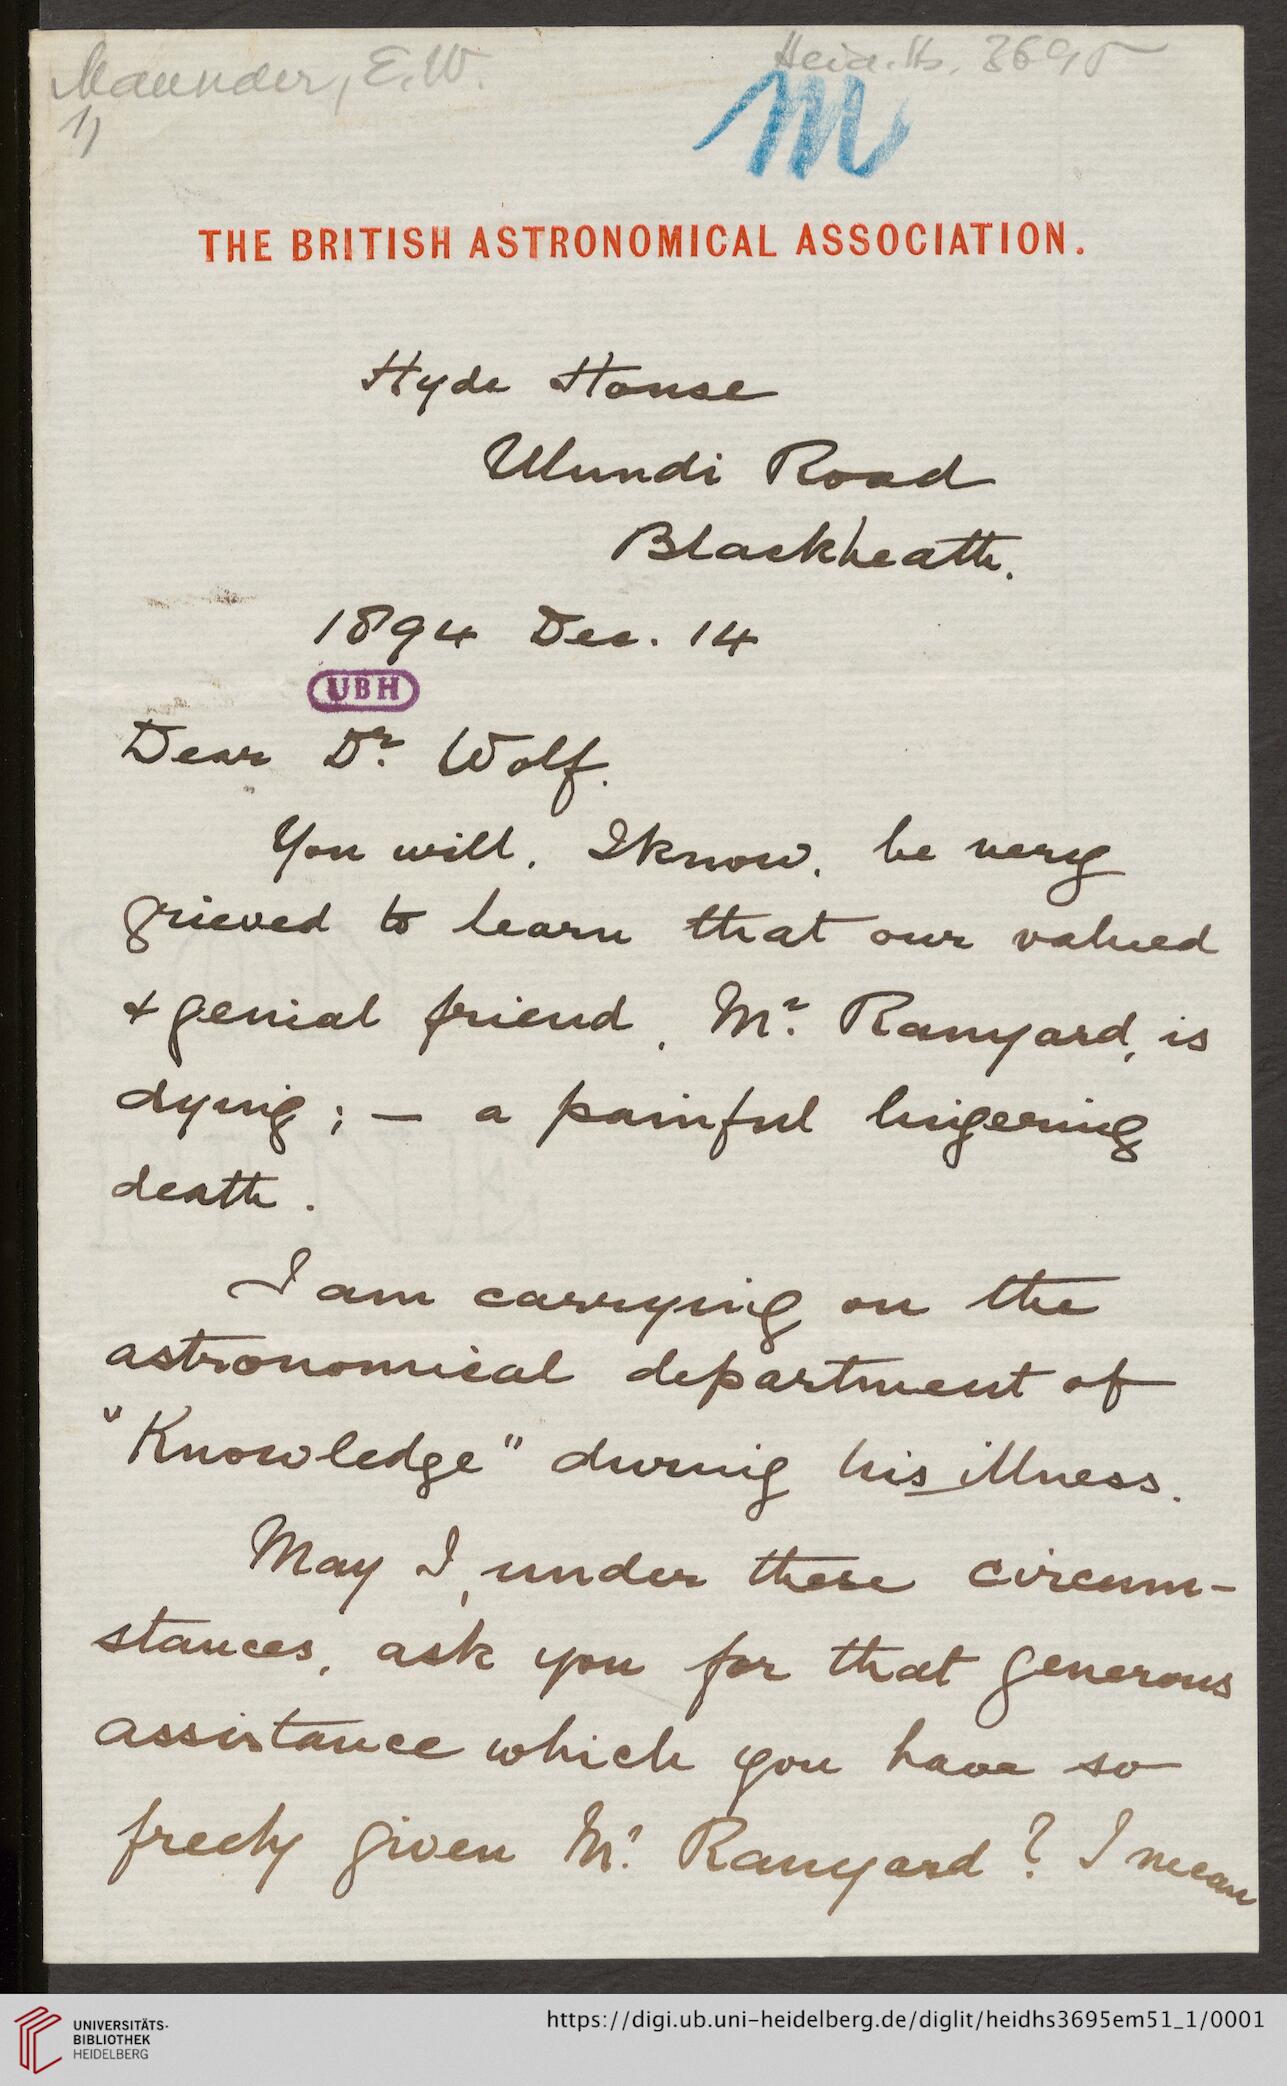 Maunder, E. W.
Heid. Hs. 3695
1)
M
THE BRITISH ASTRONOMICAL ASSOCIATION.
Hyde House
Ulundi Road
Blackheath.
1894 Dec. 14
UBH
Dear Dr. Wolf.
You will, I know, be very
grieved to learn that our valued
& genial friend, Mr. Ranyard, is
dying; — a painful lingering
death.
I am carrying on the
astronomical department of
"Knowledge" during his illness.
May I, under these circum-
stances, ask you for that generous
assistance which you have so
freely given Mr. Ranyard? I mean
UNIVERSITÄTS-
BIBLIOTHEK
HEIDELBERG
https://digi.ub.uni-heidelberg.de/diglit/heidhs3695em51_1/0001